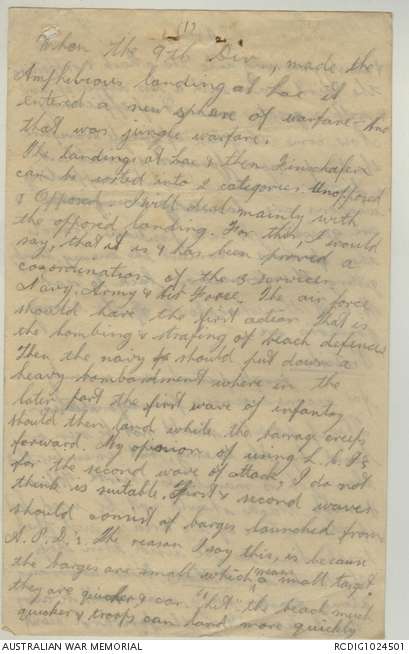 (1)
When the 9th Div, made the
Amphibious landing at Lae it
entered a new sphere of warfare - and
that was jungle warfare.
The landings at Lae & then Finschafen
can be sorted into 2 categories Unopposed
& Opposed. I will deal mainly with
the opposed landing. For this, I would
say, that it is & has been proved a
coordination of the 3 services
Navy, Army & Air Force. The air force
should have the first action. That is
the bombing & strafing of beach defences
Then the navy should put down a
heavy bombardment where in the
later part the first wave of infantry
should then land while the barrage creeps
forward. My opinion of using L.C.I's
for the second wave of attack, I do not
think is suitable. First & second waves
should consist of barges launched from
A.P.D.'s. The reason I say this, is because
the barges are small which means small target,
they are quicker & can "hit" the beach much
quicker & troops can land more quickly
AUSTRALIAN WAR MEMORIAL
RCDIG1024501